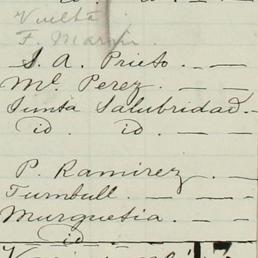 Vuelta
F. Marin
S. A. Prieto. — —
Ml. Perez. — —
Junta Salubridad. —
id. id. — —
P. Ramirez. — —
Turnbull. — — —
Murguetia. — — —
id. — —